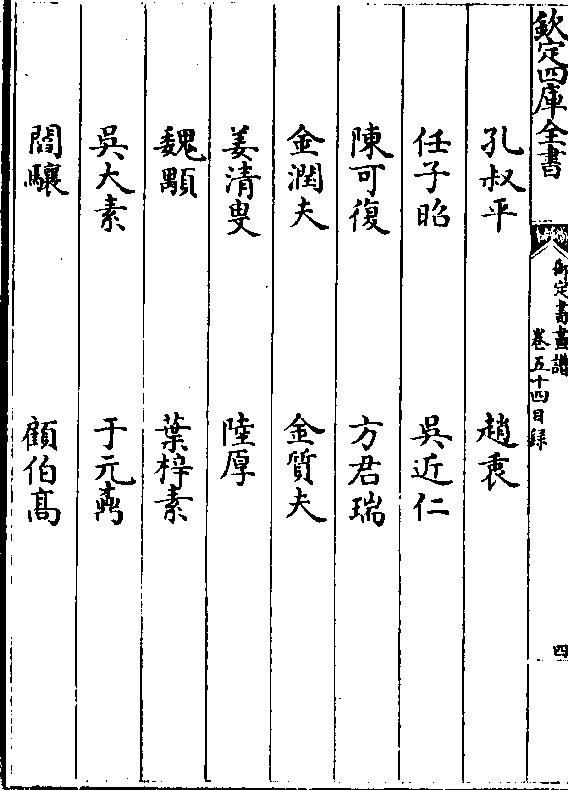 欽定四庫全書
御定書畫譜
卷五十四目録
四
孔叔平 趙衷
任子昭 吳近仁
陳可復 方君瑞
金潤夫 金質夫
姜清叟 陸厚
魏顒 葉梓素
吳大素 于元
閻驤 顧伯髙